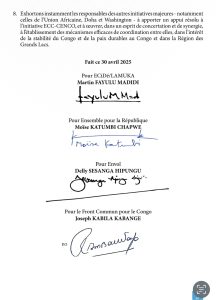 8. Exhortons instamment les responsables des autres initiatives majeures - notamment
celles de l'Union Africaine, Doha et Washington - à apporter un appui résolu à
l'initiative ECC-CENCO, et à œuvrer, dans un esprit de concertation et de synergie,
à l'établissement des mécanismes efficaces de coordination entre elles, dans l'intérêt
de la stabilité du Congo et de la paix durables au Congo et dans la Région des
Grands Lacs.
Fait ce 30 avril 2025
Pour ECiDé/LAMUKA
Martin FAYULU MADIDI
Fayulu Mad
Pour Ensemble pour la République
Moïse KATUMBI CHAPWE
Moïse Katumbi
Pour Envol
Delly SESANGA HIPUNGU
Pour le Front Commun pour le Congo
Joseph KABILA KABANGE